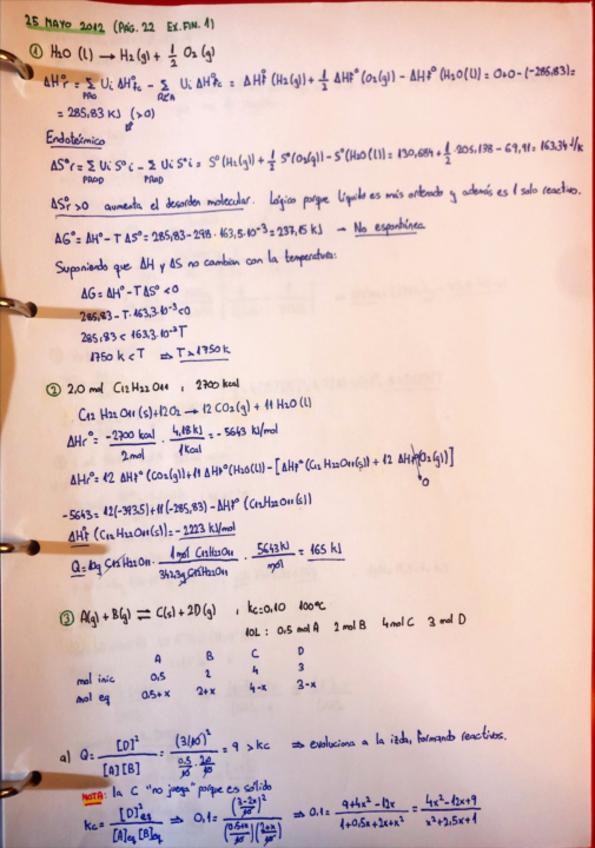 25 MAYO 2012 (PÁG. 22 EX.FIN. 1)
① H2O (l) → H2(g) + 1/2 O2(g)
ΔH°r = Σ Ui ΔH°fc - Σ Ui ΔH°fc = ΔHf° (H2(g)) + 1/2 ΔHf° (O2(g)) - ΔHf° (H2O(l)) = 0+0-(-285,83) =
PRO REA
= 285,83 KJ (>0)
Endotérmico
ΔS°r = Σ Ui S°i - Σ Ui S°i = S°(H2(g)) + 1/2 S°(O2(g)) - S°(H2O(l)) = 130,684 + 1/2 · 205,138 - 69,91 = 163,34 J/k
PROD PROD
ΔS°r >0 aumenta el desorden molecular. Lógico porque líquido es más ordenado y además es 1 solo reactivo.
ΔG° = ΔH° - T ΔS° = 285,83 - 298 · 163,5·10⁻³ = 237,15 KJ → No espontánea
Suponiendo que ΔH y ΔS no cambian con la temperatura:
ΔG = ΔH° - TΔS° < 0
285,83 - T·163,3·10⁻³ < 0
285,83 < 163,3·10⁻³T
1750 k < T ⇒ T > 1750 k
② 2,0 mol C12H22O11 , 2700 kcal
C12 H22 O11 (s) + 12 O2 → 12 CO2(g) + 11 H2O(l)
ΔHr° = -2700 kcal / 2mol · 4,18 KJ / 1kcal = -5643 KJ/mol
ΔHr° = 12 ΔHf° (CO2(g)) + 11 ΔHf° (H2O(l)) - [ΔHf° (C12 H22O11(s)) + 12 ΔHf°(O2(g))]
0
-5643 = 12(-393,5) + 11(-285,83) - ΔHf° (C12H22O11(s))
ΔHf° (C12H22O11(s)) = -2223 KJ/mol
Q = 10g C12H22O11 · 1mol C12H22O11 / 342,3g C12H22O11 · 5643 KJ / mol = 165 KJ
③ A(g) + B(g) ⇌ C(s) + 2D(g) , kc=0,10 100°C
10L : 0,5 mol A 2 mol B 4 mol C 3 mol D
A B C D
mol inic 0,5 2 4 3
mol eq 0,5+x 2+x 4-x 3-x
a) Q = [D]² / [A][B] = (3/10)² / 0,5/10 · 20/10 = 9 > kc ⇒ evoluciona a la izda, formando reactivos.
NOTA: la C "no juega" porque es sólido
kc = [D]²eq / [A]eq [B]eq ⇒ 0,1 = (3-2x/10)² / (0,5+x/10)(2+x/10) ⇒ 0,1 = 9+4x²-12x / 1+0,5x+2x+x² = 4x²-12x+9 / x²+2,5x+1